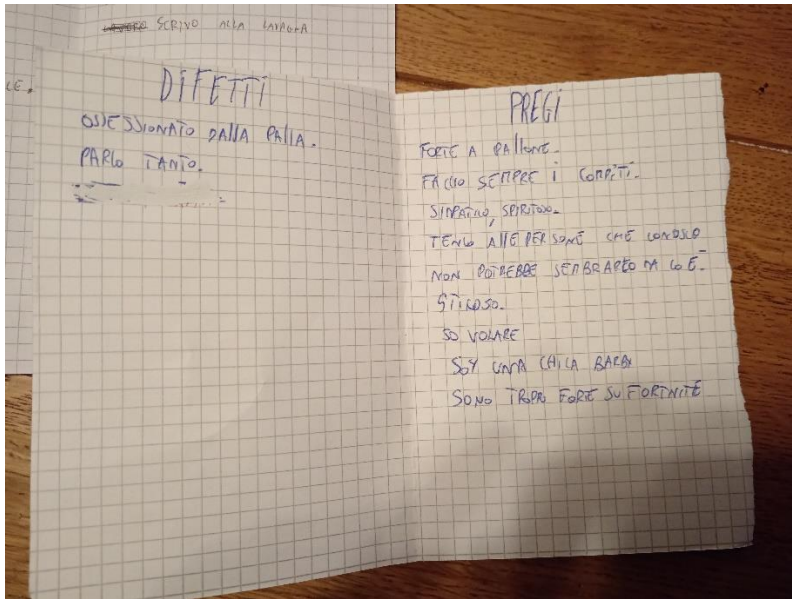 SCRIVO ALLA LAVAGNA
DIFETTI
OSSESSIONATO DALLA PALLA.
PARLO TANTO.
PREGI
FORTE A PALLONE.
FACCIO SEMPRE I COMPITI.
SIMPATICO, SPIRITOSO.
TENGO ALLE PERSONE CHE CONOSCO
NON POTREBBE SEMBRARLO MA LO È.
STILOSO.
SO VOLARE
SOY UNA CHICA BARBI
SONO TROPPO FORTE SU FORTNITE